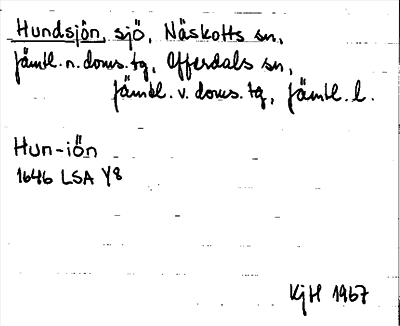 Hundsjön, sjö, Näskotts sn,
jämtl. n. doms. tg, Offerdals sn,
jämtl. v. doms. tg, jämtl. l.
Hun-iön
1646 LSA Y8
KjH 1967